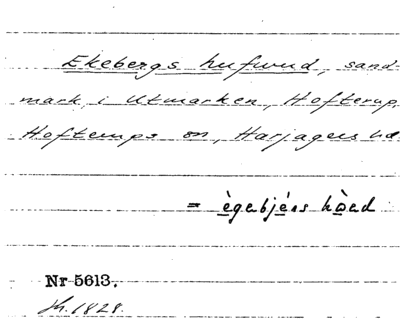 Ekebergs hufwud, sand-
mark, i Utmarken, Hofterup,
Hofterups sn, Harjagers hd.
= ègebjérs hòed
Nr 5613.
Jh. 1828.